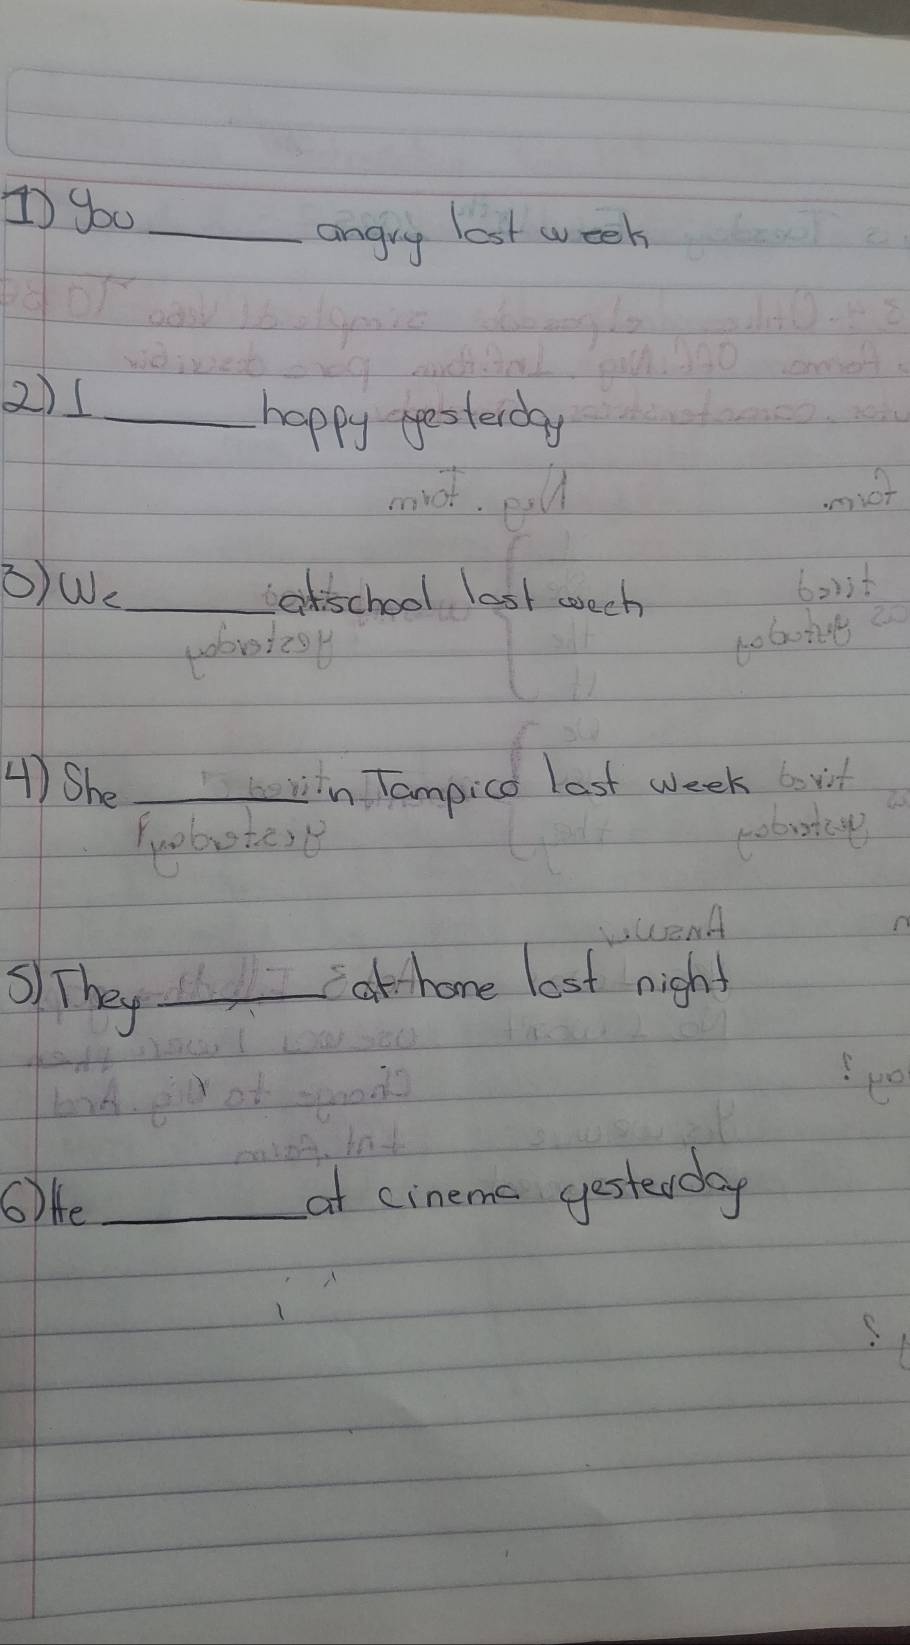 1) You ______ angry last week
2) I ______ happy yesterday
3) We ______ at school last week
4) She ______ in Tampico last week
5) They ______ at home last night
6) He ______ at cinema yesterday